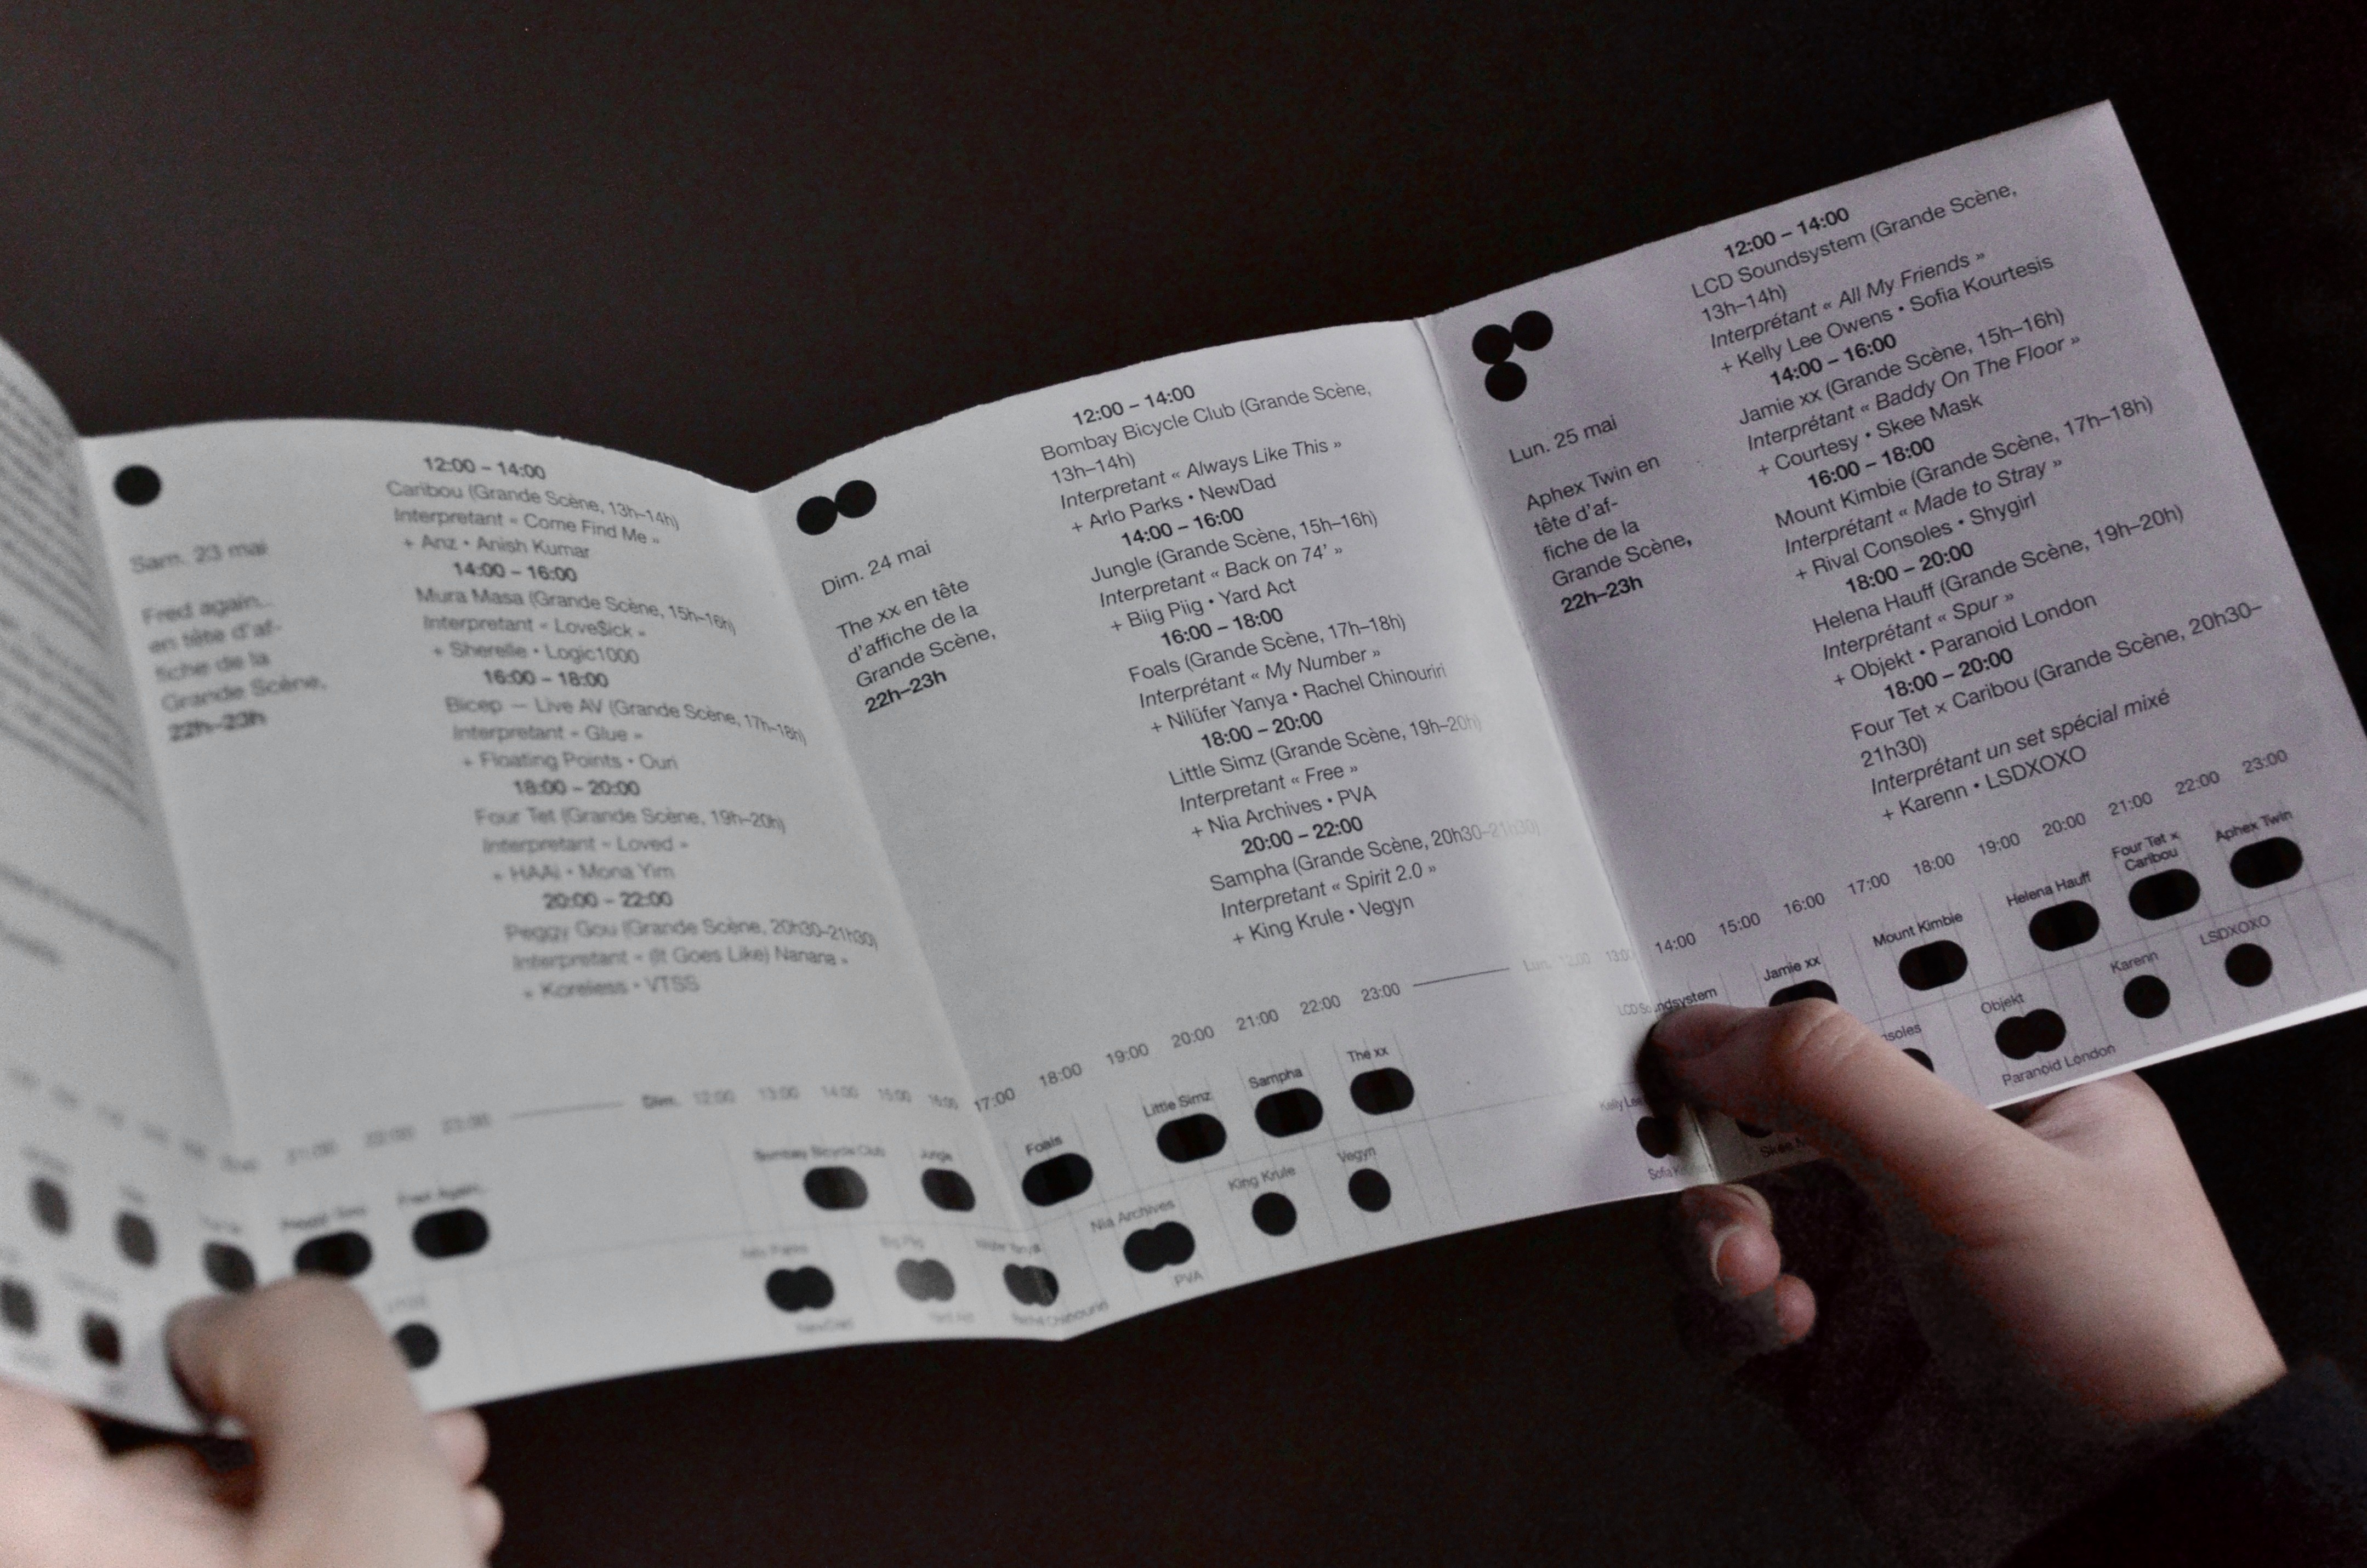 Sam. 23 mai
Fred again..
en tête d'af-
fiche de la
Grande Scène,
22h–23h
12:00 – 14:00
Caribou (Grande Scène, 13h–14h)
Interpretant « Come Find Me »
+ Anz • Anish Kumar
14:00 – 16:00
Mura Masa (Grande Scène, 15h–16h)
Interpretant « Love$ick »
+ Sherelle • Logic1000
16:00 – 18:00
Bicep — Live AV (Grande Scène, 17h–18h)
Interpretant « Glue »
+ Floating Points • Ouri
18:00 – 20:00
Four Tet (Grande Scène, 19h–20h)
Interpretant « Loved »
+ HAAi • Mona Yim
20:00 – 22:00
Peggy Gou (Grande Scène, 20h30–21h30)
Interpretant « (It Goes Like) Nanana »
+ Koreless • VTSS
Dim. 24 mai
The xx en tête
d'affiche de la
Grande Scène,
22h–23h
12:00 – 14:00
Bombay Bicycle Club (Grande Scène,
13h–14h)
Interpretant « Always Like This »
+ Arlo Parks • NewDad
14:00 – 16:00
Jungle (Grande Scène, 15h–16h)
Interpretant « Back on 74' »
+ Biig Piig • Yard Act
16:00 – 18:00
Foals (Grande Scène, 17h–18h)
Interprétant « My Number »
+ Nilüfer Yanya • Rachel Chinouriri
18:00 – 20:00
Little Simz (Grande Scène, 19h–20h)
Interpretant « Free »
+ Nia Archives • PVA
20:00 – 22:00
Sampha (Grande Scène, 20h30–21h30)
Interpretant « Spirit 2.0 »
+ King Krule • Vegyn
Lun. 25 mai
Aphex Twin en
tête d'af-
fiche de la
Grande Scène,
22h–23h
12:00 – 14:00
LCD Soundsystem (Grande Scène,
13h–14h)
Interprétant « All My Friends »
+ Kelly Lee Owens • Sofia Kourtesis
14:00 – 16:00
Jamie xx (Grande Scène, 15h–16h)
Interprétant « Baddy On The Floor »
+ Courtesy • Skee Mask
16:00 – 18:00
Mount Kimbie (Grande Scène, 17h–18h)
Interprétant « Made to Stray »
+ Rival Consoles • Shygirl
18:00 – 20:00
Helena Hauff (Grande Scène, 19h–20h)
Interprétant « Spur »
+ Objekt • Paranoid London
18:00 – 20:00
Four Tet × Caribou (Grande Scène, 20h30–
21h30)
Interprétant un set spécial mixé
+ Karenn • LSDXOXO
21:00 22:00 23:00 Dim. 12:00 13:00 14:00 15:00 16:00 17:00 18:00 19:00 20:00 21:00 22:00 23:00 Lun. 12:00 13:00 14:00 15:00 16:00 17:00 18:00 19:00 20:00 21:00 22:00 23:00
Peggy Gou Fred Again.. Bombay Bicycle Club Jungle Foals Little Simz Sampha The xx LCD Soundsystem Jamie xx Mount Kimbie Helena Hauff Four Tet × Caribou Aphex Twin
VTSS Arlo Parks Biig Piig Nilüfer Yanya Nia Archives King Krule Vegyn Kelly Lee soles Objekt Karenn LSDXOXO
NewDad Yard Act Rachel Chinouriri PVA Sofia Skee Paranoid London